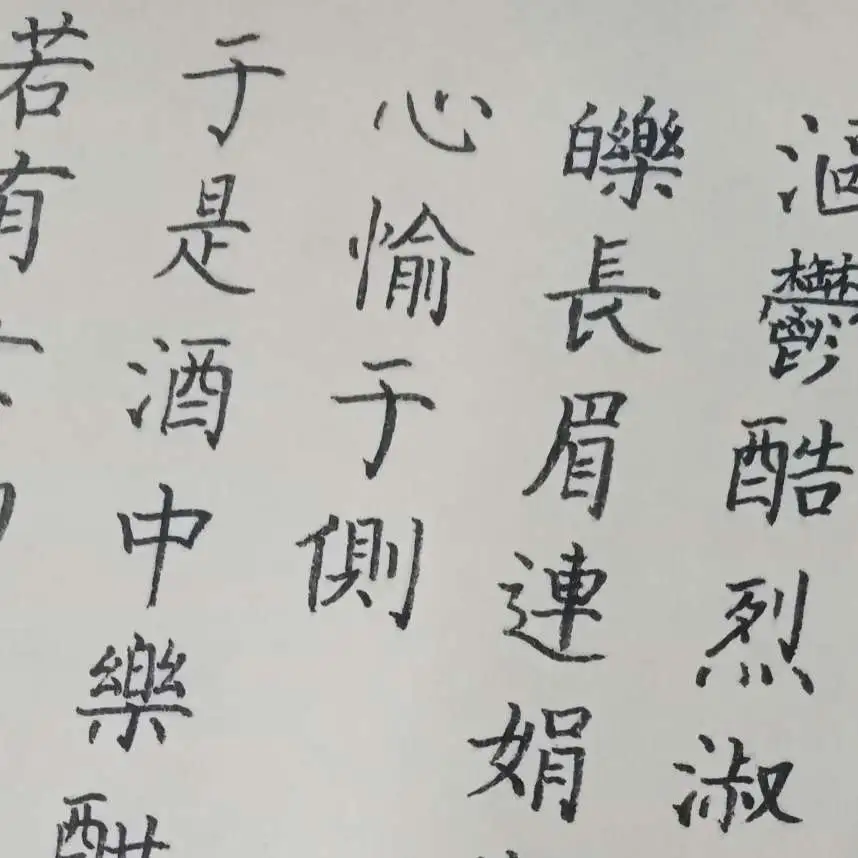 漚鬱酷烈淑
皪長眉連娟
心愉于側
于是酒中樂酣
若有